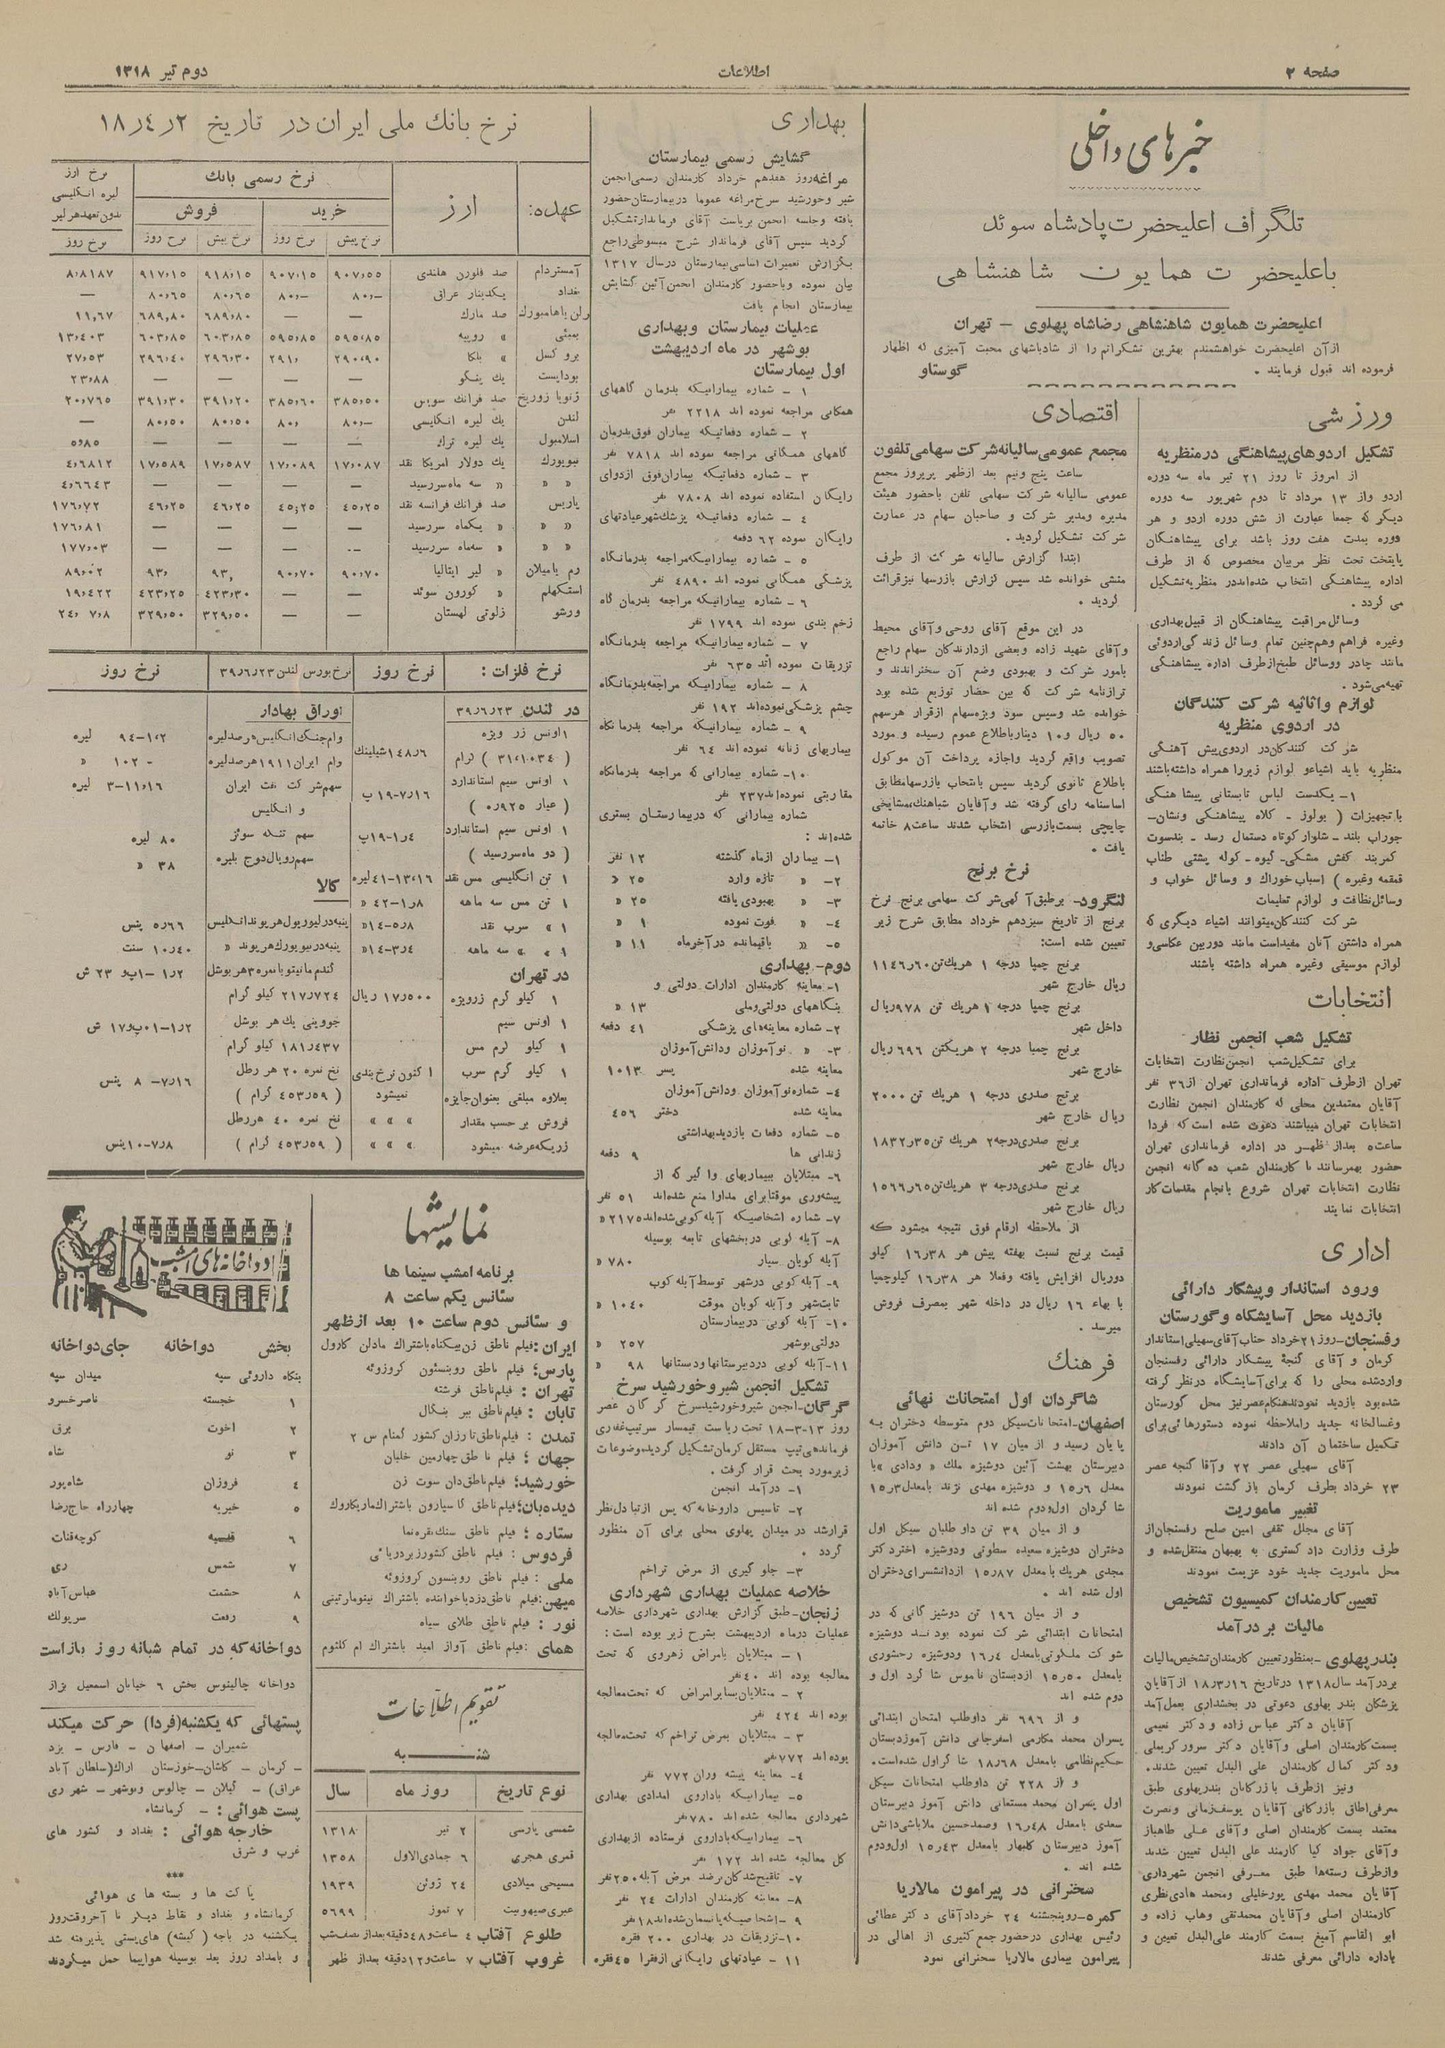 صفحه ۲
اطلاعات
دوم تیر ۱۳۱۸
خبرهای داخلی
تلگراف اعلیحضرت پادشاه سوئد
باعلیحضرت همایون شاهنشاهی
اعلیحضرت همایون شاهنشاهی رضاشاه پهلوی – تهران
ازآن اعلیحضرت خواهشمندم بهترین تشکراتم را از شادباشهای محبت آمیزی که اظهار
فرموده اند قبول فرمایند . گوستاو
ورزشی
تشکیل اردوهای پیشاهنگی در منظریه
از امروز تا روز ۲۱ تیر ماه سه دوره
اردو واز ۱۳ مرداد تا دوم شهریور سه دوره
دیگر که جمعا عبارت از شش دوره اردو و هر
دوره بمدت هفت روز باشد برای پیشاهنگان
پایتخت تحت نظر مربیان مخصوص که از طرف
اداره پیشاهنگی انتخاب شده‌اند در منظریه تشکیل
می گردد .
وسائل مراقبت پیشاهنگان از قبیل بهداری
وغیره فراهم وهم‌چنین تمام وسائل زندگی اردوئی
مانند چادر ووسائل طبخ از طرف اداره پیشاهنگی
تهیه میشود .
لوازم واثاثیه شرکت کنندگان
در اردوی منظریه
شرکت کنندگان در اردوی پیش آهنگی
منظریه باید اشیاء و لوازم زیر را همراه داشته باشند
۱- یکدست لباس تابستانی پیشاهنگی
با تجهیزات ( بولوز - کلاه پیشاهنگی ونشان-
جوراب بلند - شلوار کوتاه دستمال رسد - بندسوت
کمربند کفش مشکی- گیوه - کوله پشتی طناب
قمقمه وغیره ) اسباب خوراک و وسائل خواب و
وسائل نظافت و لوازم تعلیمات
شرکت کنندگان میتوانند اشیاء دیگری که
همراه داشتن آنان مفید است مانند دوربین عکاسی و
لوازم موسیقی وغیره همراه داشته باشند
انتخابات
تشکیل شعب انجمن نظار
برای تشکیل شعب انجمن نظارت انتخابات
تهران از طرف اداره فرمانداری تهران از ۳۶ نفر
آقایان معتمدین محلی که کارمندان انجمن نظارت
انتخابات تهران میباشند دعوت شده است که فردا
ساعت ۵ بعد از ظهر در اداره فرمانداری تهران
حضور بهمرسانند تا کارمندان شعب ده گانه انجمن
نظارت انتخابات تهران شروع بانجام مقدمات کار
انتخابات نمایند
اداری
ورود استاندار و پیشکار دارائی
بازدید محل آسایشگاه و گورستان
رفسنجان- روز ۲۱ خرداد جناب آقای سهیلی استاندار
کرمان و آقای گنجهٔ پیشکار دارائی رفسنجان
وارد شده محلی را که برای آسایشگاه در نظر گرفته
شده بود بازدید نمودند هنگام عصر نیز محل گورستان
وغسالخانه جدید را ملاحظه نموده دستورهائی برای
تکمیل ساختمان آن دادند
آقای سهیلی عصر ۲۲ و آقا گنجه عصر
۲۳ خرداد بطرف کرمان بازگشت نمودند
تغییر ماموریت
آقای مجلل تقفی امین صلح رفسنجان از
طرف وزارت دادگستری به بهبهان منتقل شده و
محل ماموریت جدید خود عزیمت نمودند
تعیین کارمندان کمیسیون تشخیص
مالیات بر درآمد
بندر پهلوی - بمنظور تعیین کارمندان تشخیص مالیات
بردرآمد سال ۱۳۱۸ در تاریخ ۱۸٫۳٫۱۶ از آقایان
پزشکان بندر پهلوی دعوتی در بخشداری بعمل آمد
آقایان دکتر عباس زاده و دکتر نعیمی
بسمت کارمندان اصلی و آقایان دکتر سرور کریملی
ودکتر کمال کارمندان علی البدل تعیین شدند.
ونیز از طرف بازرگانان بندرپهلوی طبق
معرفی اطاق بازرگانی آقایان یوسف زمانی ونصرت
معتمد بسمت کارمندان اصلی و آقای علی طاهباز
و آقای جواد کیا کارمند علی البدل تعیین شدند
واز طرف رسته‌ها طبق معرفی انجمن شهرداری
آقایان محمد مهدی پورخلیلی ومحمد هادی نظری
کارمندان اصلی و آقایان محمدتقی وهاب زاده و
ابو القاسم آمیغ بسمت کارمند علی البدل تعیین و
باداره دارائی معرفی شدند
اقتصادی
مجمع عمومی سالیانه شرکت سهامی تلفون
ساعت پنج ونیم بعد ازظهر پریروز مجمع
عمومی سالیانه شرکت سهامی تلفن باحضور هیئت
مدیره ومدیر شرکت و صاحبان سهام در عمارت
شرکت تشکیل گردید.
ابتدا گزارش سالیانه شرکت از طرف
منشی خوانده شد سپس گزارش بازرسها نیز قرائت
گردید .
در این موقع آقای روحی و آقای محیط
و آقای شهید زاده وبعضی از دارندگان سهام راجع
بامور شرکت و بهبودی وضع آن سخنراندند و
ترازنامه شرکت که بین حضار توزیع شده بود
خوانده شد وسپس سود ویژه سهام از قرار هر سهم
۵۰ ریال و ۱۰ دینار باطلاع عموم رسیده و مورد
تصویب واقع گردید واجازه پرداخت آن موکول
باطلاع ثانوی گردید سپس بانتخاب بازرسها مطابق
اساسنامه رای گرفته شد و آقایان شباهنگ، مشایخی
چایچی بسمت بازرسی انتخاب شدند ساعت ۸ خاتمه
یافت .
نرخ برنج
لنگرود- برطبق آگهی شرکت سهامی برنج. نرخ
برنج از تاریخ سیزدهم خرداد مطابق شرح زیر
تعیین شده است:
برنج چمپا درجه ۱ هر یک تن ۱۱۴۶٫۶۰
ریال خارج شهر
برنج چمپا درجه ۱ هر یک تن ۹۷۸ ریال
داخل شهر
برنج چمپا درجه ۲ هر یکتن ۶۹۶ ریال
خارج شهر
برنج صدری درجه ۱ هر یک تن ۲۰۰۰
ریال خارج شهر
برنج صدری درجه ۲ هر یک تن ۱۸۳۲٫۳۵
ریال خارج شهر
برنج صدری درجه ۳ هر یک تن ۱۵۶۶٫۶۵
ریال خارج شهر
از ملاحظه ارقام فوق نتیجه میشود که
قیمت برنج نسبت بهفته پیش هر ۱۶٫۳۸ کیلو
دوریال افزایش یافته وفعلا هر ۱۶٫۳۸ کیلوچمپا
با بهاء ۱۶ ریال در داخله شهر بمصرف فروش
میرسد .
فرهنگ
شاگردان اول امتحانات نهائی
اصفهان- امتحانات سیکل دوم متوسطه دختران به
پایان رسید و از میان ۱۷ تن دانش آموزان
دبیرستان بهشت آئین دوشیزه ملک « ودادی » با
معدل ۱۵٫۶ و دوشیزه مهدی نژند بامعدل ۱۵٫۳
شاگردان اول ودوم شده اند
و از میان ۳۹ تن داوطلبان سیکل اول
دختران دوشیزه سعیده سطوتی ودوشیزه اختر دکتر
مجدی هریک بامعدل ۱۵٫۸۷ از دانشسرای دختران
اول شده اند .
و از میان ۱۹۶ تن دوشیزگانی که در
امتحانات ابتدائی شرکت نموده بودند دوشیزه
شوکت ملکوتی بامعدل ۱۶٫۴ ودوشیزه رخشوری
بامعدل ۱۵٫۵۰ از دبستان ناموس شاگرد اول و
دوم شده اند
و از ۶۹۶ نفر داوطلب امتحان ابتدائی
پسران محمد مکارمی اسفرجانی دانش آموز دبستان
حکیم نظامی بامعدل ۱۸٫۶۸ شاگرد اول شده است.
و از ۲۲۸ تن داوطلب امتحانات سیکل
اول پسران محمد مستعانی دانش آموز دبیرستان
سعدی بامعدل ۱۶٫۴۸ وصمدحسین ملاباشی دانش
آموز دبیرستان گلبهار بامعدل ۱۵٫۴۳ اول ودوم
شده اند .
سخنرانی در پیرامون مالاریا
کمره- روز پنجشنبه ۲۴ خرداد آقای دکتر عطائی
رئیس بهداری درحضور جمع کثیری از اهالی در
پیرامون بیماری مالاریا سخنرانی نمود
بهداری
گشایش رسمی بیمارستان
مراغه روز هفدهم خرداد کارمندان رسمی انجمن
شیر وخورشید سرخ مراغه عموما در بیمارستان حضور
یافته وجلسه انجمن بریاست آقای فرماندار تشکیل
گردید سپس آقای فرماندار شرح مبسوطی راجع
بگزارش تعمیرات اساسی بیمارستان در سال ۱۳۱۷
بیان نموده وباحضور کارمندان انجمن آئین گشایش
بیمارستان انجام یافت
عملیات بیمارستان وبهداری
بوشهر در ماه اردیبهشت
اول بیمارستان
۱ – شماره بیمارانیکه بدرمان گاههای
همگانی مراجعه نموده اند ۲۲۱۸ نفر
۲ – شماره دفعاتیکه بیماران فوق بدرمان
گاههای همگانی مراجعه نموده اند ۷۸۱۸ نفر
۳ – شماره دفعاتیکه بیماران فوق ازدوای
رایگان استفاده نموده اند ۷۸۰۸ نفر
۴ – شماره دفعاتیکه پزشک شهر عیادتهای
رایگان نموده ۶۲ دفعه
۵ – شماره بیمارانیکه مراجعه بدرمانگاه
پزشکی همگانی نموده اند ۴۸۹۰ نفر
۶ – شماره بیمارانیکه مراجعه بدرمان گاه
زخم بندی نموده اند ۱۷۹۹ نفر
۷ – شماره بیمارانیکه مراجعه بدرمانگاه
تزریقات نموده اند ۶۳۵ نفر
۸ – شماره بیمارانیکه مراجعه بدرمانگاه
چشم پزشکی نموده‌اند ۱۹۲ نفر
۹ – شماره بیمارانیکه مراجعه بدرمانگاه
بیماریهای زنانه نموده اند ۶۴ نفر
۱۰- شماره بیمارانی که مراجعه بدرمانگاه
مقاربتی نموده‌اند ۲۳۷ نفر
شماره بیمارانی که در بیمارستان بستری
شده‌اند :
۱- بیماران ازماه گذشته ۱۲ نفر
۲- « تازه وارد ۲۵ «
۳- « بهبودی یافته ۲۵ «
۴- « فوت نموده ۱ «
۵- « باقیمانده در آخرماه ۱۱ «
دوم- بهداری
۱- معاینه کارمندان ادارات دولتی و
بنگاههای دولتی وملی ۱۳ «
۲- شماره معاینه‌های پزشکی ۴۱ دفعه
۳- « نوآموزان ودانش آموزان
معاینه شده پسر ۱۰۱۳
۴- شماره نوآموزان ودانش آموزان
معاینه شده دختر ۴۵۶
۵- شماره دفعات بازدید بهداشتی
زندانی ها ۹ دفعه
۶- مبتلایان ببیماریهای واگیر که از
پیشه‌وری موقتا برای مداوا منع شده‌اند ۵۱ نفر
۷- شماره اشخاصیکه آبله کوبی شده‌اند ۲۱۷۵ «
۸- آبله کوبی دربخشهای تابعه بوسیله
آبله کوبان سیار ۷۸۰ «
۹- آبله کوبی درشهر توسط آبله کوب
ثابت شهر و آبله کوبان موقت ۱۰۴۰ «
۱۰- آبله کوبی در بیمارستان
دولتی بوشهر ۲۵۷ «
۱۱- آبله کوبی دردبیرستانها ودبستانها ۹۸ «
تشکیل انجمن شیروخورشید سرخ
گرگان- انجمن شیروخورشید سرخ گرگان عصر
روز ۱۳-۳-۱۸ تحت ریاست تیمسار سرتیپ غفاری
فرماندهی تیپ مستقل گرگان تشکیل گردید و موضوعات
زیر مورد بحث قرار گرفت .
۱- درآمد انجمن
۲- تاسیس داروخانه که پس از تبادل نظر
قرار شد در میدان پهلوی محلی برای آن منظور
گردد .
۳- جلوگیری از مرض تراخم
خلاصه عملیات بهداری شهرداری
زنجان- طبق گزارش بهداری شهرداری خلاصه
عملیات درماه اردیبهشت بشرح زیر بوده است :
۱ – مبتلایان بامراض زهروی که تحت
معالجه بوده اند ۴۰ نفر
۲ – مبتلایان بسایر امراض که تحت معالجه
بوده اند ۴۲۴ نفر
۳ – مبتلایان بمرض تراخم که تحت معالجه
بوده اند ۷۷۲ نفر
۴- معاینه پیشه وران ۷۷۲ نفر
۵- بیمارانیکه باداروی امدادی بهداری
شهرداری معالجه شده اند ۷۸۰ نفر
۶- بیمارانیکه باداروی فرستاده از بهداری
کل معالجه شده اند ۱۷۲ نفر
۷- تلقیح شدگان برضد مرض آبله ۲۵۰ نفر
۸- معاینه کارمندان ادارات ۲۴ نفر
۹ – اشخاصیکه پانسمان شده‌اند ۱۸ نفر
۱۰- تزریقات در بهداری ۲۰۰ فقره
۱۱ – عیادتهای رایگانی از فقرا ۴۵ فقره
نرخ بانک ملی ایران در تاریخ ۱۸٫۴٫۲
عهده: ارز نرخ رسمی بانک نرخ ارز لیره انگلیسی بدون تعهد هر لیر
خرید فروش
نرخ پیش نرخ روز نرخ پیش نرخ روز نرخ روز
آمستردام صد فلورن هلندی ۹۰۷٫۵۵ ۹۰۷٫۱۵ ۹۱۸٫۱۵ ۹۱۷٫۱۵ ۸٫۸۱۸۷
بغداد یکدینار عراقی ۸۰٫- ۸۰٫- ۸۰٫۶۵ ۸۰٫۶۵ —
برلن باهامبورگ صد مارک — — ۶۸۹٫۸۰ ۶۸۹٫۸۰ ۱۱٫۶۷
بمبئی » روپیه ۵۹۵٫۸۵ ۵۹۵٫۸۵ ۶۰۳٫۸۵ ۶۰۳٫۸۵ ۱۳٫۴۰۳
بروکسل » بلکا ۲۹۰٫۹۰ ۲۹۱٫ ۲۹۶٫۳۰ ۲۹۶٫۴۰ ۲۷٫۵۳
بوداپست یک پنگو — — — — ۲۳٫۸۸
ژنو یا زوریخ صد فرانک سویس ۳۸۵٫۵۰ ۳۸۵٫۶۰ ۳۹۱٫۲۰ ۳۹۱٫۳۰ ۲۰٫۷۶۵
لندن یک لیره انگلیسی ۸۰٫- ۸۰٫ ۸۰٫۵۰ ۸۰٫۵۰ —
اسلامبول یک لیره ترک — — — — ۵٫۸۵
نیویورک یک دولار امریکا نقد ۱۷٫۰۸۷ ۱۷٫۰۸۹ ۱۷٫۵۸۷ ۱۷٫۵۸۹ ۴٫۶۸۱۲
» » » سه ماه سررسید — — — — ۴٫۶۶۴۳
پاریس صد فرانک فرانسه نقد ۴۵٫۲۵ ۴۵٫۲۵ ۴۶٫۲۵ ۴۶٫۲۵ ۱۷۶٫۷۲
» » » یکماه سررسید — — — — ۱۷۶٫۸۱
» » » سه ماه سررسید — — — — ۱۷۷٫۰۳
رم یا میلان » لیر ایتالیا ۹۰٫۷۰ ۹۰٫۷۰ ۹۳٫ ۹۳٫ ۸۹٫۰۲
استکهلم » کورون سوئد — — ۴۲۳٫۳۰ ۴۲۳٫۲۵ ۱۹٫۴۲۲
ورشو زلوتی لهستان — — ۳۲۹٫۵۰ ۳۲۹٫۵۰ ۲۴٫۷٫۸
نرخ فلزات : نرخ روز
در لندن ۳۹٫۶٫۲۳
۱ اونس زر ویژه
( ۳۱٫۱۰۳۴ ) گرام ۱۴۸٫۶ شیلینگ
۱ اونس سیم استاندارد
( عیار ۰٫۹۲۵ ) ۱۹-۷٫۱۶ پ
۱ اونس سیم استاندارد
( دو ماه سررسید ) ۱۹-۱٫۴ پ
۱ تن انگلیسی مس نقد ۴۱-۱۳٫۱۶ لیره
۱ تن مس سه ماهه ۴۲-۱٫۸ «
۱ » سرب نقد ۱۴-۵٫۸ «
۱ » » سه ماهه ۱۴-۳٫۴ «
در تهران
۱ کیلو گرم زرویژه ۱۷٫۵۰۰ ریال
۱ اونس سیم
۱ کیلو گرم مس
۱ کیلو گرم سرب اکنون نرخ بندی نمیشود
بعلاوه مبلغی بعنوان جایزه
فروش بر حسب مقدار » » »
زریکه عرضه میشود » » »
نرخ بورس لندن ۳۹٫۶٫۲۳ نرخ روز
اوراق بهادار
وام جنگ انگلیس هر صد لیره ۹۴-۱٫۲ لیره
وام ایران ۱۹۱۱ هر صد لیره ۱۰۲- «
سهم شرکت نفت ایران و انگلیس ۳-۱۱٫۱۶ لیره
سهم تنگه سوئز ۸۰ لیره
سهم رویال دوج بلیره ۳۸ «
کالا
پنبه در لیورپول هر پوند انگلیس ۵٫۶۶ پنس
پنبه در نیویورک هر پوند « ۱۰٫۴۰ سنت
گندم مانیتوبا نمره ۳ هر بوشل ۱-۱٫۲ پ و ۲۳ ش
۲۱۷٫۷۲۴ کیلو گرام
جو وینی پگ هر بوشل ۰۱-۱٫۲ پ و ۱۷ ش
۱۸۱٫۴۳۷ کیلو گرام
نخ نمره ۲۰ هر رطل
( ۴۵۳٫۵۹ گرام ) ۸-۷٫۱۶ پنس
نخ نمره ۴۰ هر رطل
( ۴۵۳٫۵۹ گرام ) ۱۰-۷٫۸ پنس
نمایشها
برنامه امشب سینما ها
سئانس یکم ساعت ۸
و سئانس دوم ساعت ۱۰ بعد از ظهر
ایران: فیلم ناطق زن بیگناه باشتراک مادلن کارول
پارس: فیلم ناطق روبنسون کروزوئه
تهران : فیلم ناطق فرشته
تابان : فیلم ناطق ببر بنگال
تمدن : فیلم ناطق تارزان کشور گمنام س ۲
جهان : فیلم ناطق چهارمین خلبان
خورشید: فیلم ناطق دان سوت زن
دیده‌بان: فیلم ناطق گا سپارون باشتراک ماریکاروک
ستاره : فیلم ناطق سنگ نقره نما
فردوس : فیلم ناطق کشور زیر دریائی
ملی : فیلم ناطق روبنسون کروزوئه
میهن: فیلم ناطق دزد با خواننده باشتراک نینو مارتینی
نور : فیلم ناطق طلای سیاه
همای : فیلم ناطق آواز امید باشتراک ام کلثوم
تقویم اطلاعات
شنبه
نوع تاریخ روز ماه سال
شمسی پارسی ۲ تیر ۱۳۱۸
قمری هجری ۶ جمادی الاول ۱۳۵۸
مسیحی میلادی ۲۴ ژوئن ۱۹۳۹
عبری صیهونیت ۷ تموز ۵۶۹۹
طلوع آفتاب ۴ ساعت و ۴۸ دقیقه بعد از نصف شب
غروب آفتاب ۷ ساعت و ۱۲ دقیقه بعد از ظهر
دواخانه‌های امشب
بخش دواخانه جای دواخانه
بنگاه داروئی سپه میدان سپه
۱ خجسته ناصرخسرو
۲ اخوت برق
۳ نو شاه
۴ فروزان شاه‌پور
۵ خیریه چهارراه حاج رضا
۶ قدسیه کوچه قنات
۷ شمس ری
۸ حشمت عباس آباد
۹ رفعت سرپولک
دواخانه که در تمام شبانه روز باز است
دواخانه جالینوس بخش ۶ خیابان اسمعیل بزاز
پستهائی که یکشنبه (فردا) حرکت میکند
شمیران - اصفهان - فارس - یزد
- کرمان - کاشان- خوزستان اراک (سلطان آباد
عراق) - گیلان - چالوس ونوشهر - شهر ری
پست هوائی : - کرمانشاه
خارجه هوائی : بغداد و کشور های
غرب و شرق
***
پاکت ها و بسته های هوائی
کرمانشاه و بغداد و نقاط دیگر تا آخر وقت روز
یکشنبه در باجه ( گیشه ) های پستی پذیرفته شد
و بامداد روز بعد بوسیله هواپیما حمل میگردند